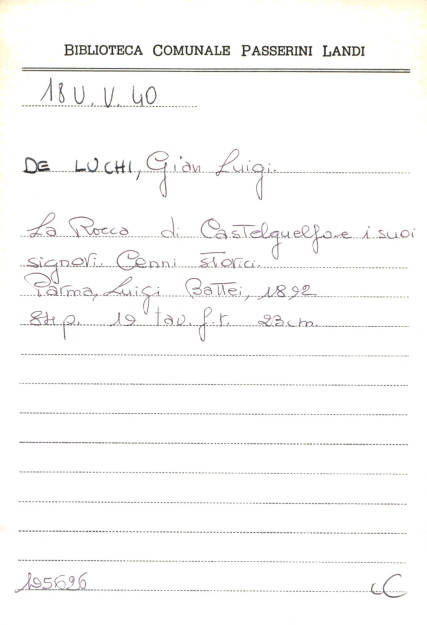 BIBLIOTECA COMUNALE PASSERINI LANDI
18 U. V. 40
DE LUCHI, Gian Luigi.
La Rocca di Castelguelfo e i suoi
signori. Cenni storici.
Parma, Luigi Battei, 1892
84 p. 19 tav. f.t. 23 cm.
195696